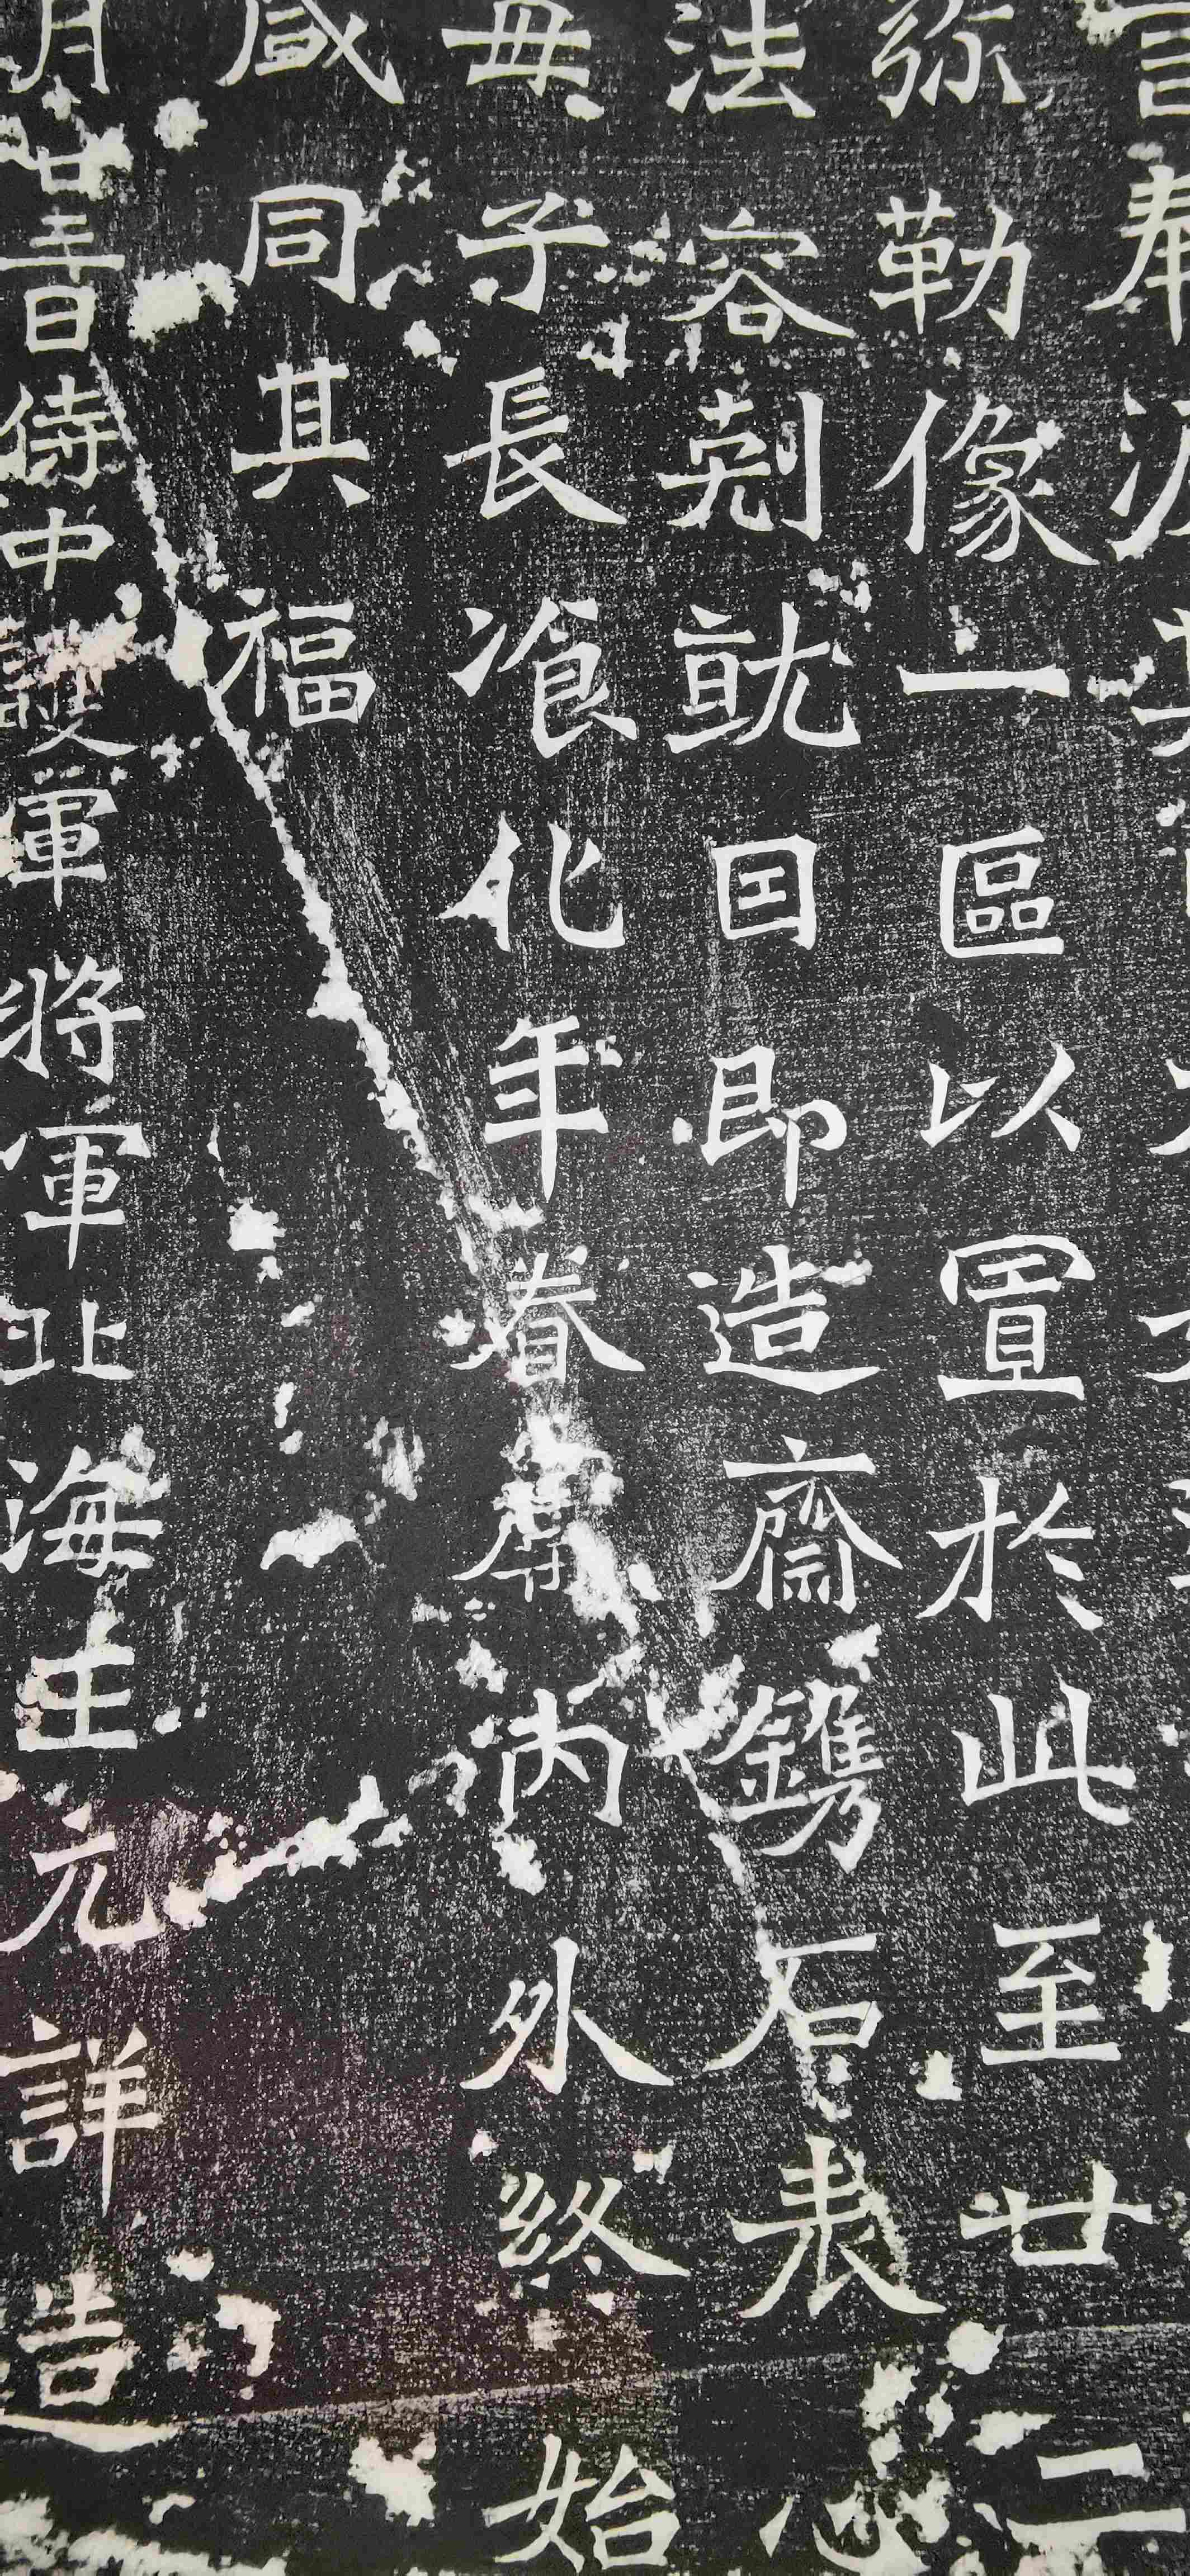 言奉淚其
弥勒像一區以置於此至廿二
法容剋就因即造齋鐫石表心
母子長飡化年眷屬內外終始
咸同其福
月廿三日侍中護軍將軍北海王元詳造